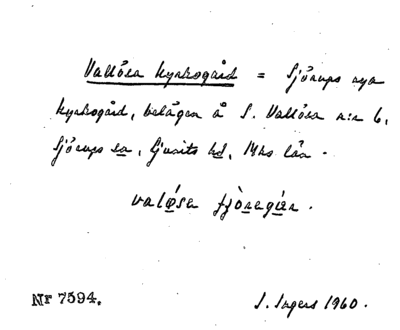 Vallösa kyrkogård = Sjörups nya
kyrkogård, belägen å S. Vallösa n:r 6,
Sjörups sn, Ljunits hd, Mhs län.
valǿsa
Nr 7594. S. Ingers 1960.